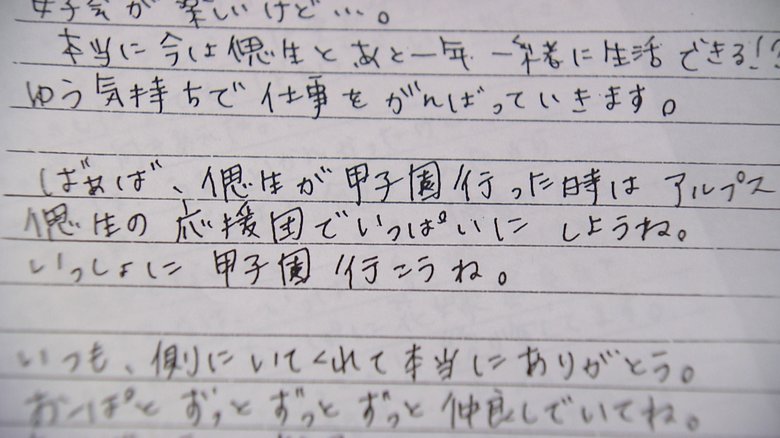 子会が楽しいけど…。
本当に今は偲生とあと一年一緒に生活できる!?
ゆう気持ちで仕事をがんばっていきます。
ばぁば、偲生が甲子園行った時はアルプス
偲生の応援団でいっぱいにしようね。
いっしょに甲子園行こうね。
いつも、側にいてくれて本当にありがとう。
おっぱとずっとずっとずっと仲良しでいてね。